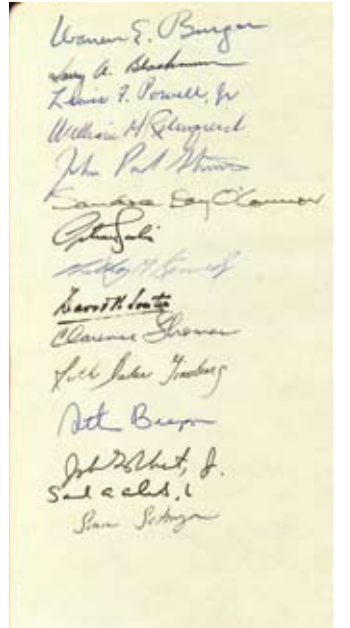 Warren E. Burger
Harry A. Blackmun
Lewis F. Powell, Jr
William H Rehnquist
John Paul Stevens
Sandra Day O'Connor
Antonin Scalia
Anthony M Kennedy
David H. Souter
Clarence Thomas
Ruth Bader Ginsburg
Stephen Breyer
John G. Roberts, Jr.
Samuel A. Alito, Jr.
Sonia Sotomayor